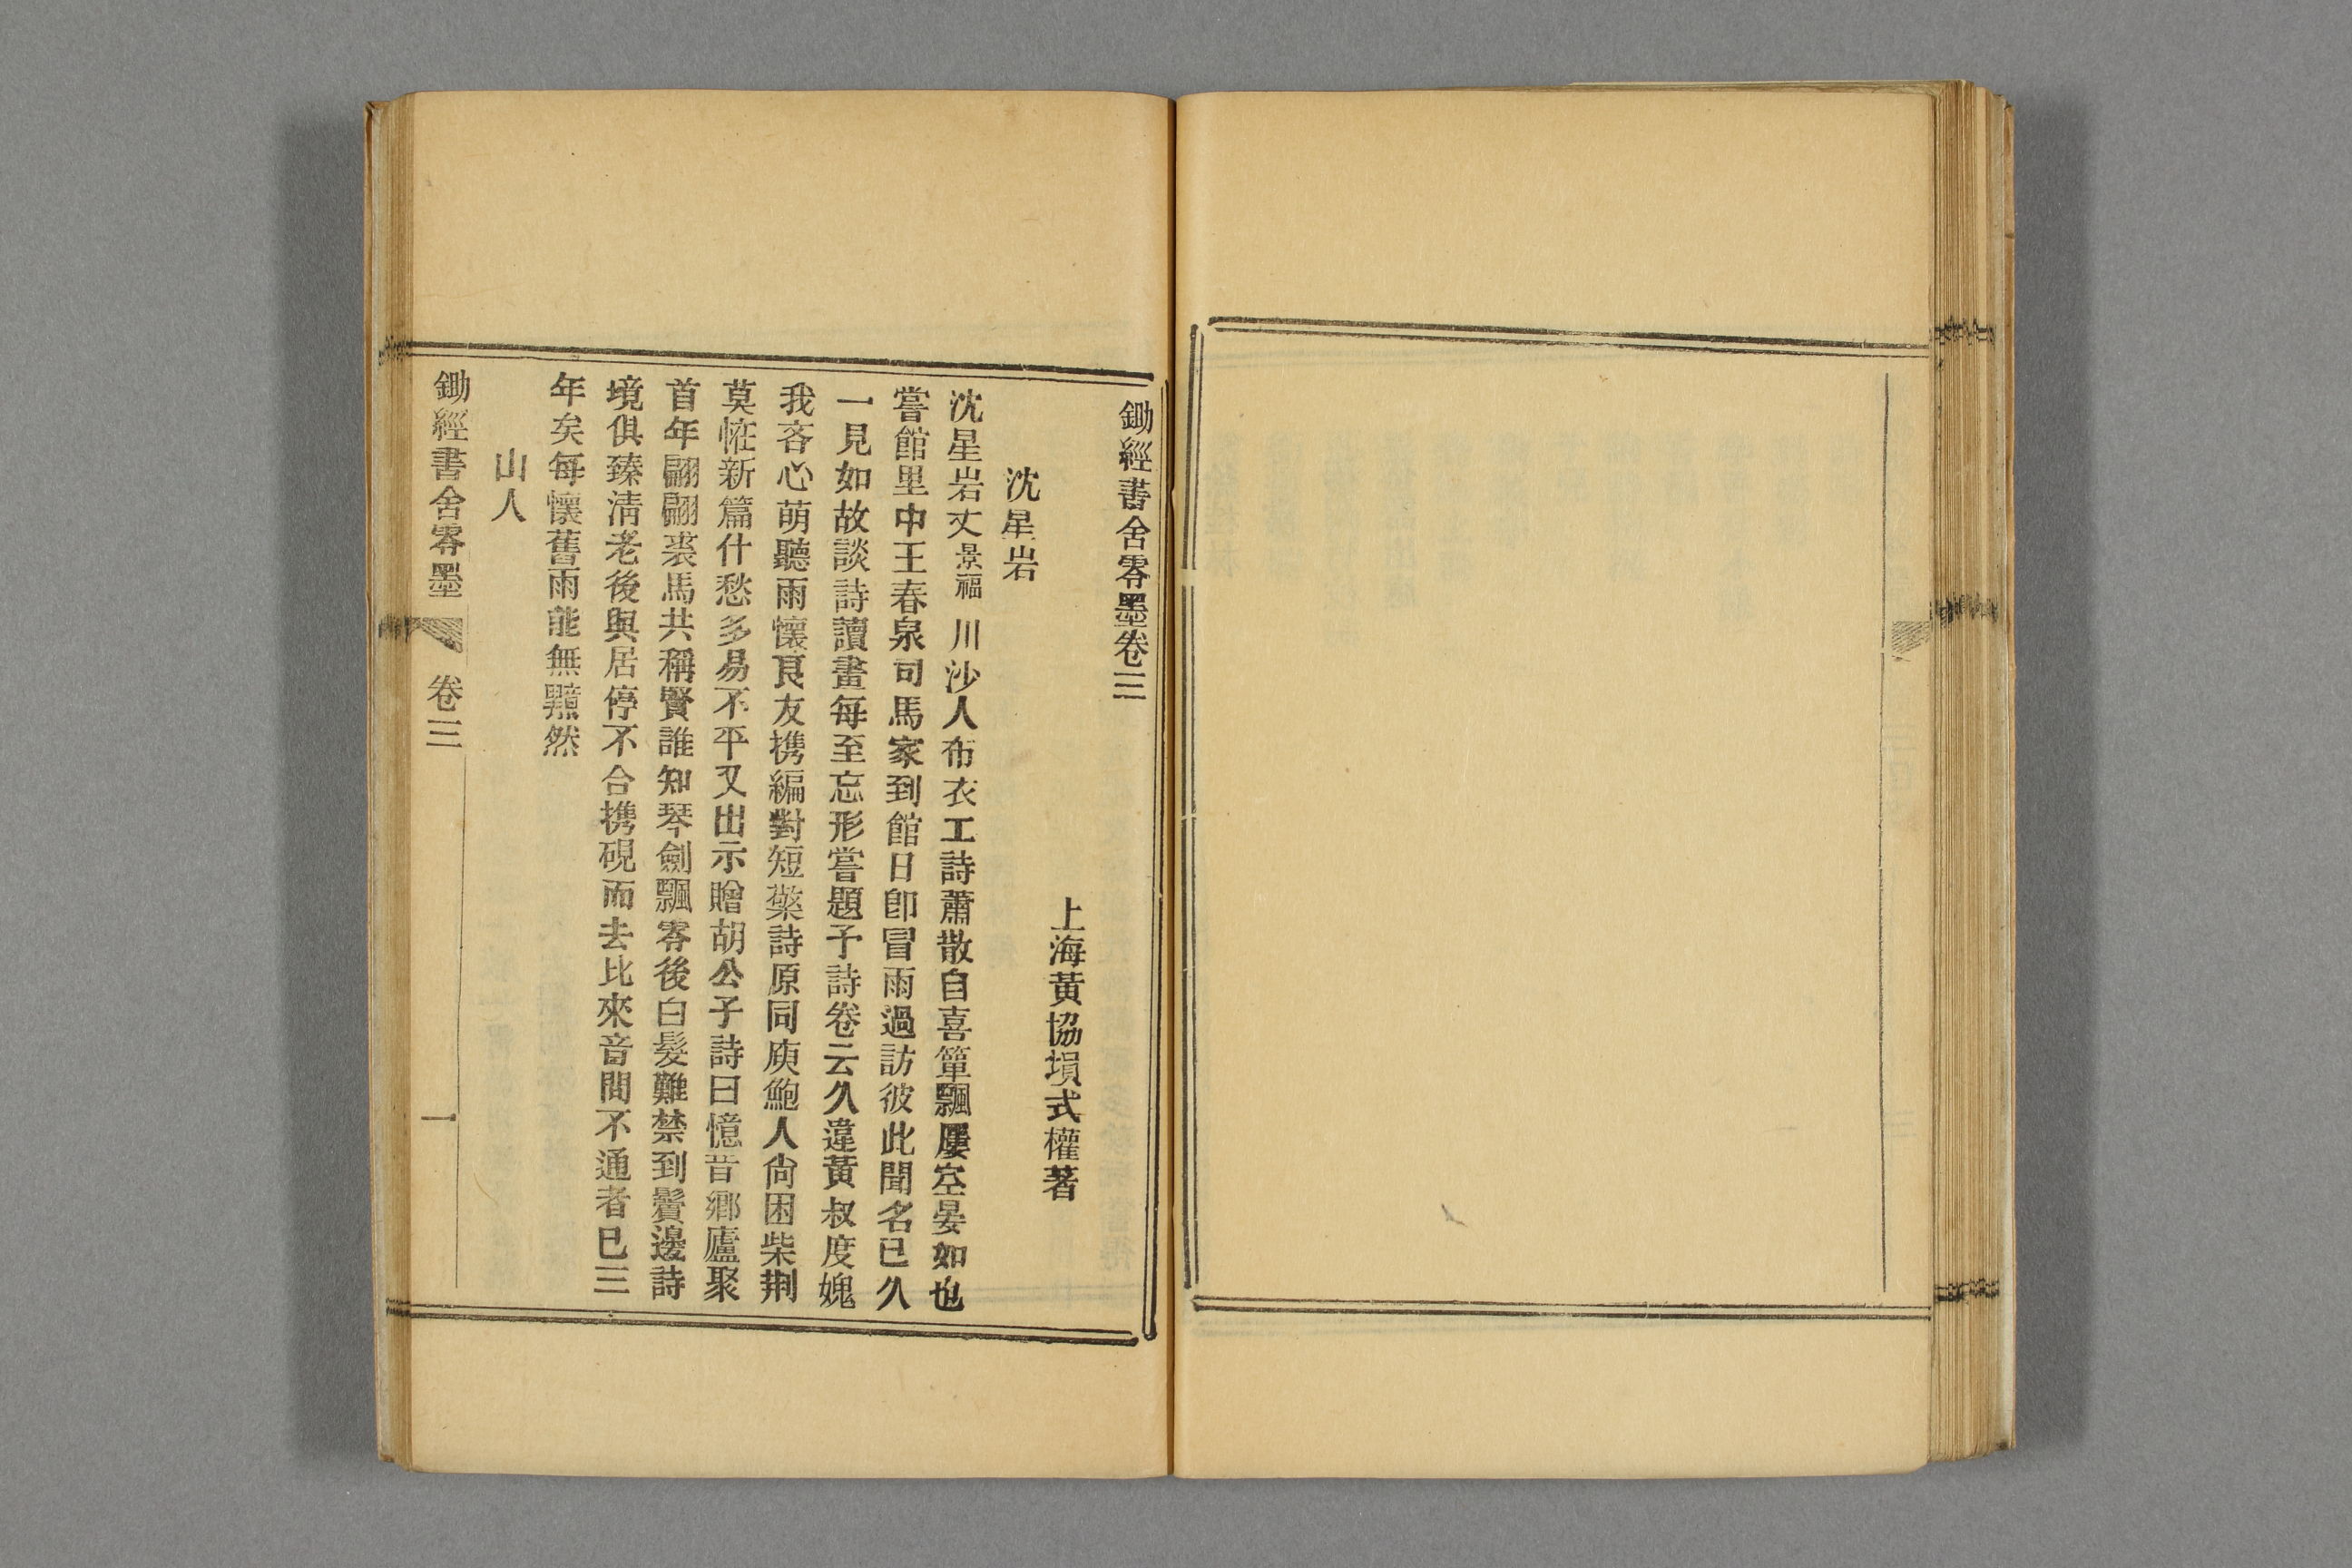 鋤經書舍零墨卷三
上海黃協塤式權著
沈星岩
沈星岩丈景福川沙人布衣工詩蕭散自喜簞飄屢空晏如也
嘗館里中王春泉司馬家到館日卽冒雨過訪彼此聞名已久
一見如故談詩讀畫每至忘形嘗題予詩卷云久違黃叔度媿
我吝心萌聽雨懷良友携編對短檠詩原同庾鮑人尙困柴荆
莫怪新篇什愁多易不平又出示贈胡公子詩曰憶昔鄉廬聚
首年翩翩裘馬共稱賢誰知琴劍飄零後白髮難禁到鬢邊詩
境俱臻淸老後與居停不合携硯而去比來音問不通者已三
年矣每懷舊雨能無黯然
山人
鋤經書舍零墨
卷三
一